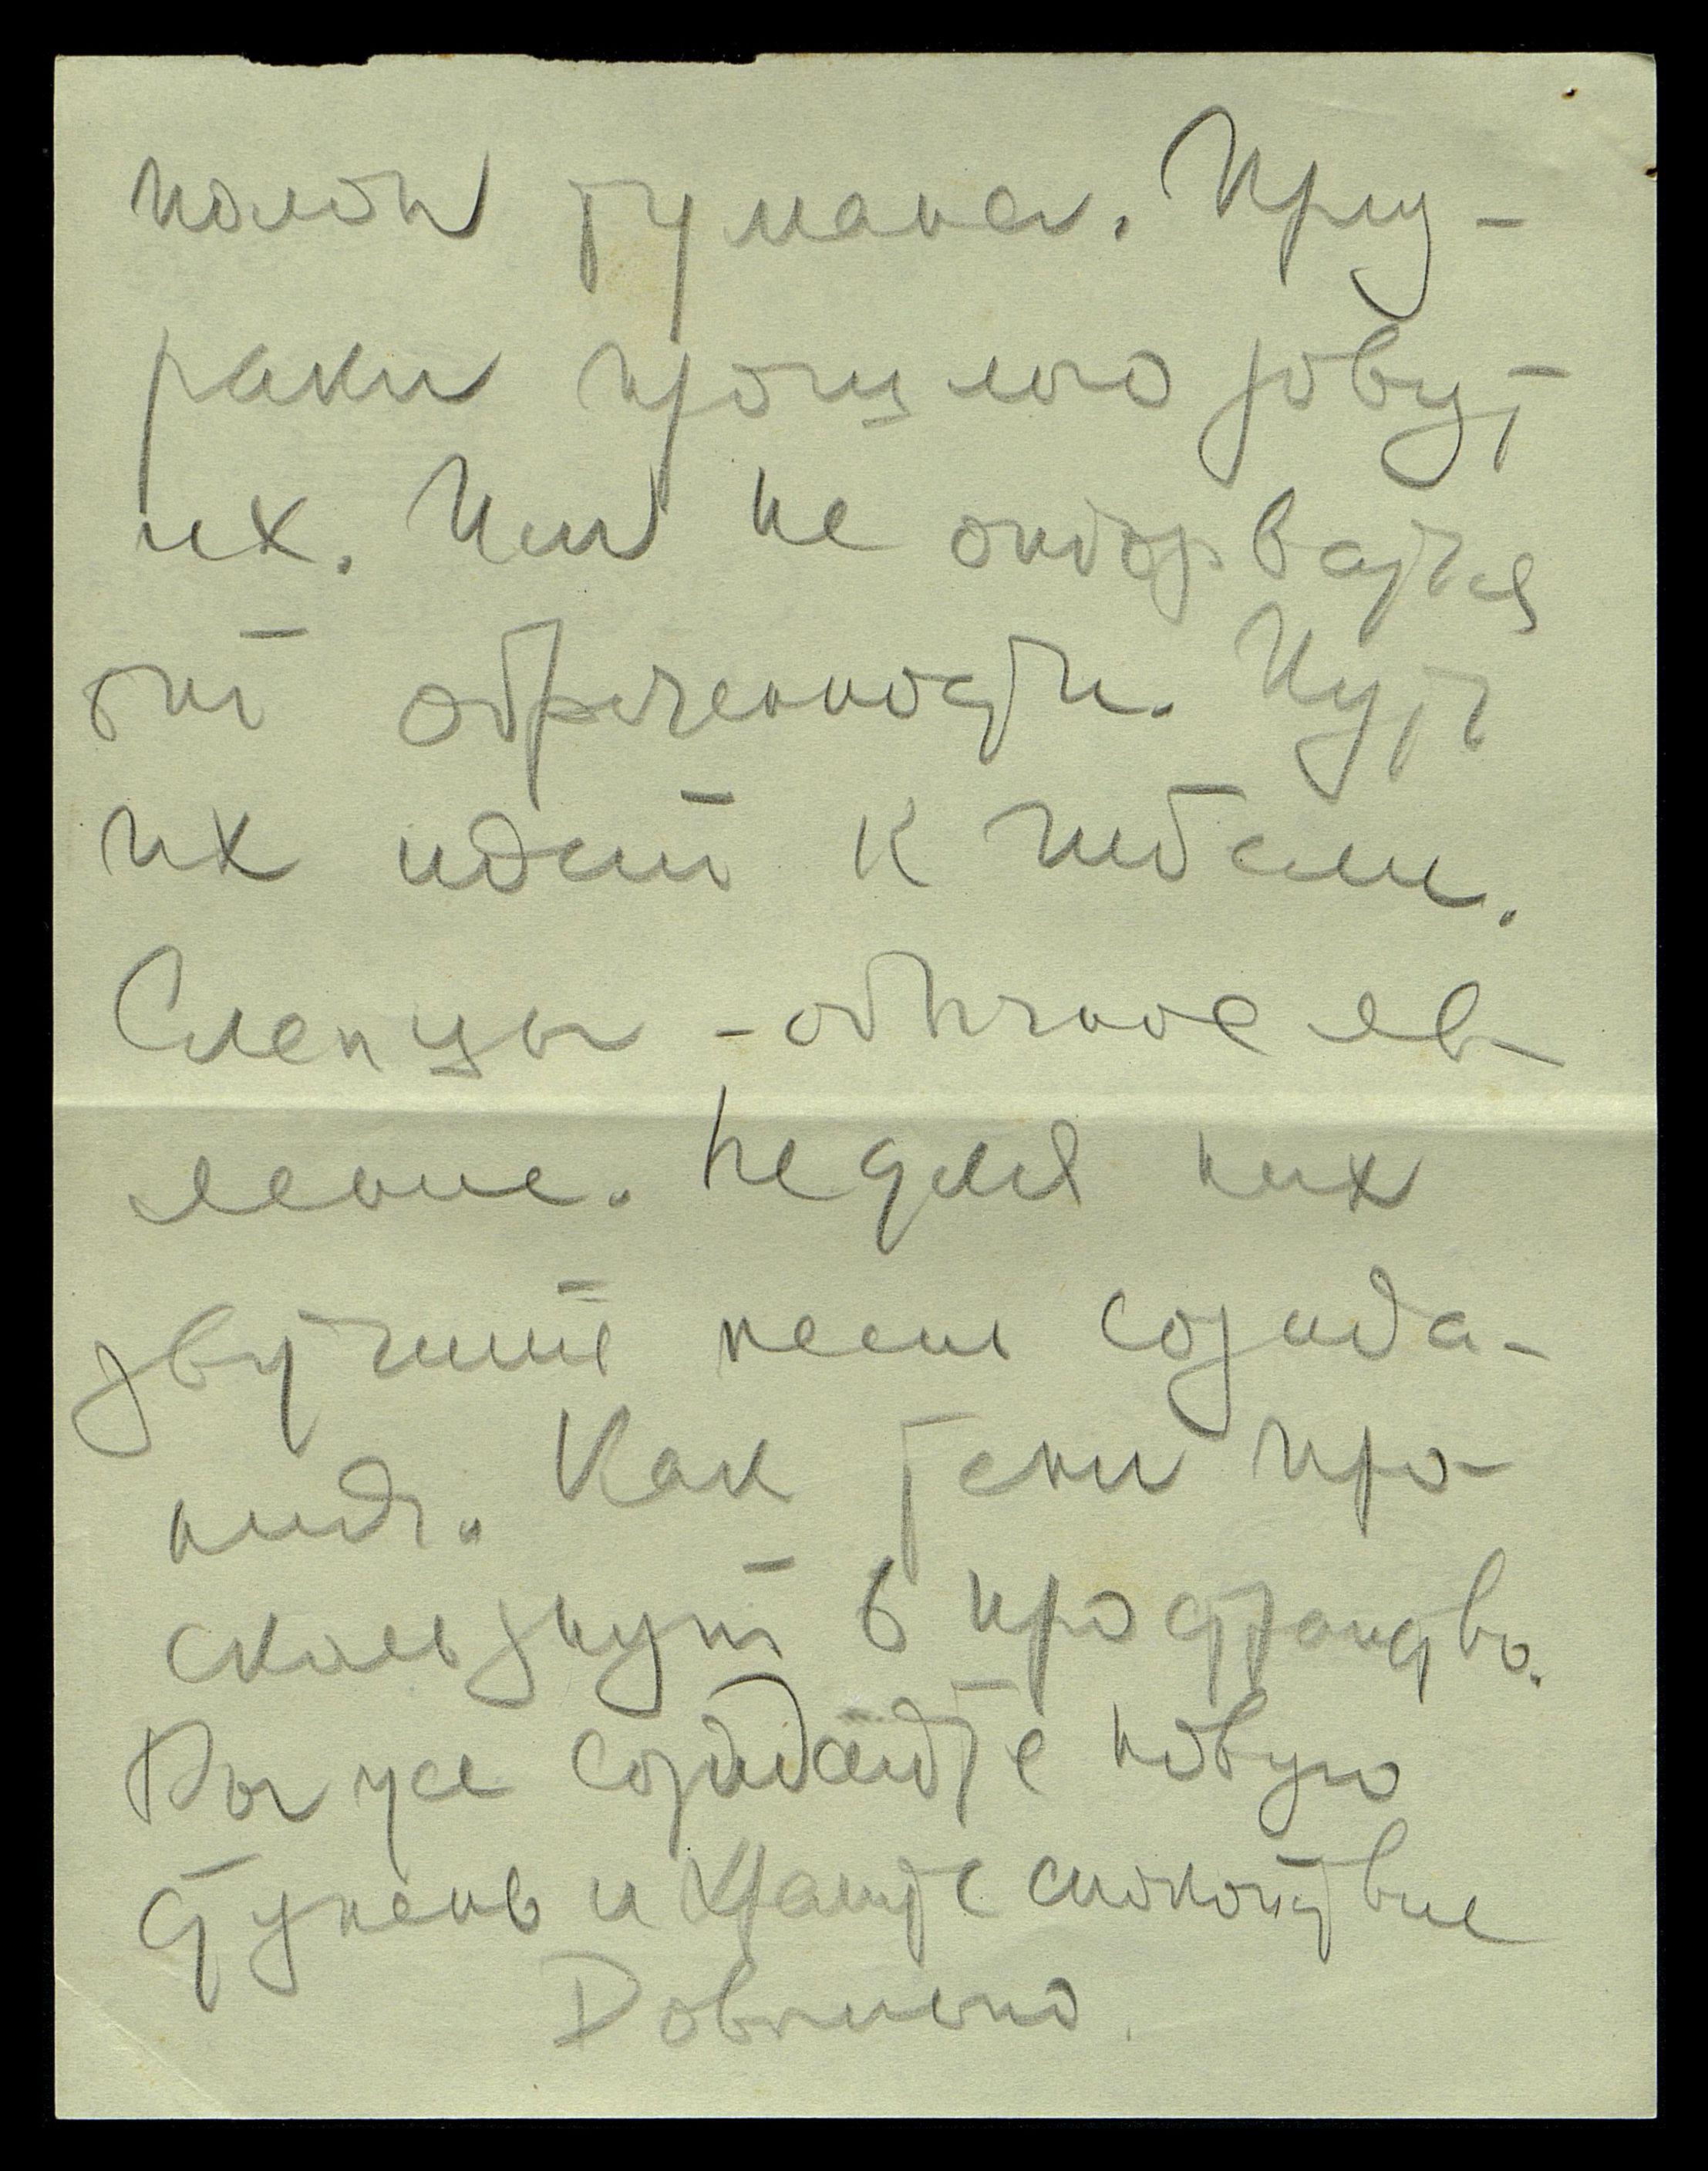 полон тумана. Приз-
раки прошлого зовут
их. Им не оторваться
от обреченности. Путь
их идет к гибели.
Слепцы - обычное яв-
ление. Не для них
звучит песнь созида-
ния. Как тени про-
скользнут в пространство.
Вы же созидайте новую
ступень и храните спокойствие
Довольно.